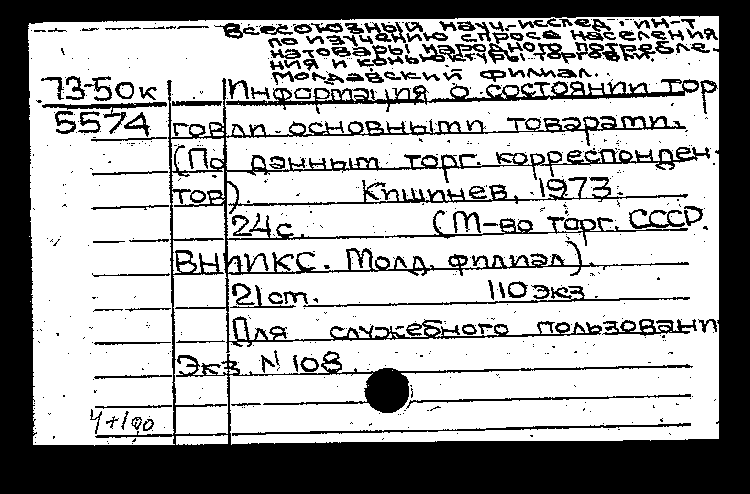 Всесоюзный науч.-исслед. ин-т
по изучению спроса населения
на товары народного потребле-
ния и конъюктуры торговли.
Молдавский филиал.
73-50к Информация о состоянии тор
5574 говли основными товарами.
(По данным торг. корреспонден-
тов). Кишинев, 1973.
24с. (М-во торг. СССР.
ВНИИКС. Молд. филиал).
21см. 110экз.
Для служебного пользовани
Экз. N 108.